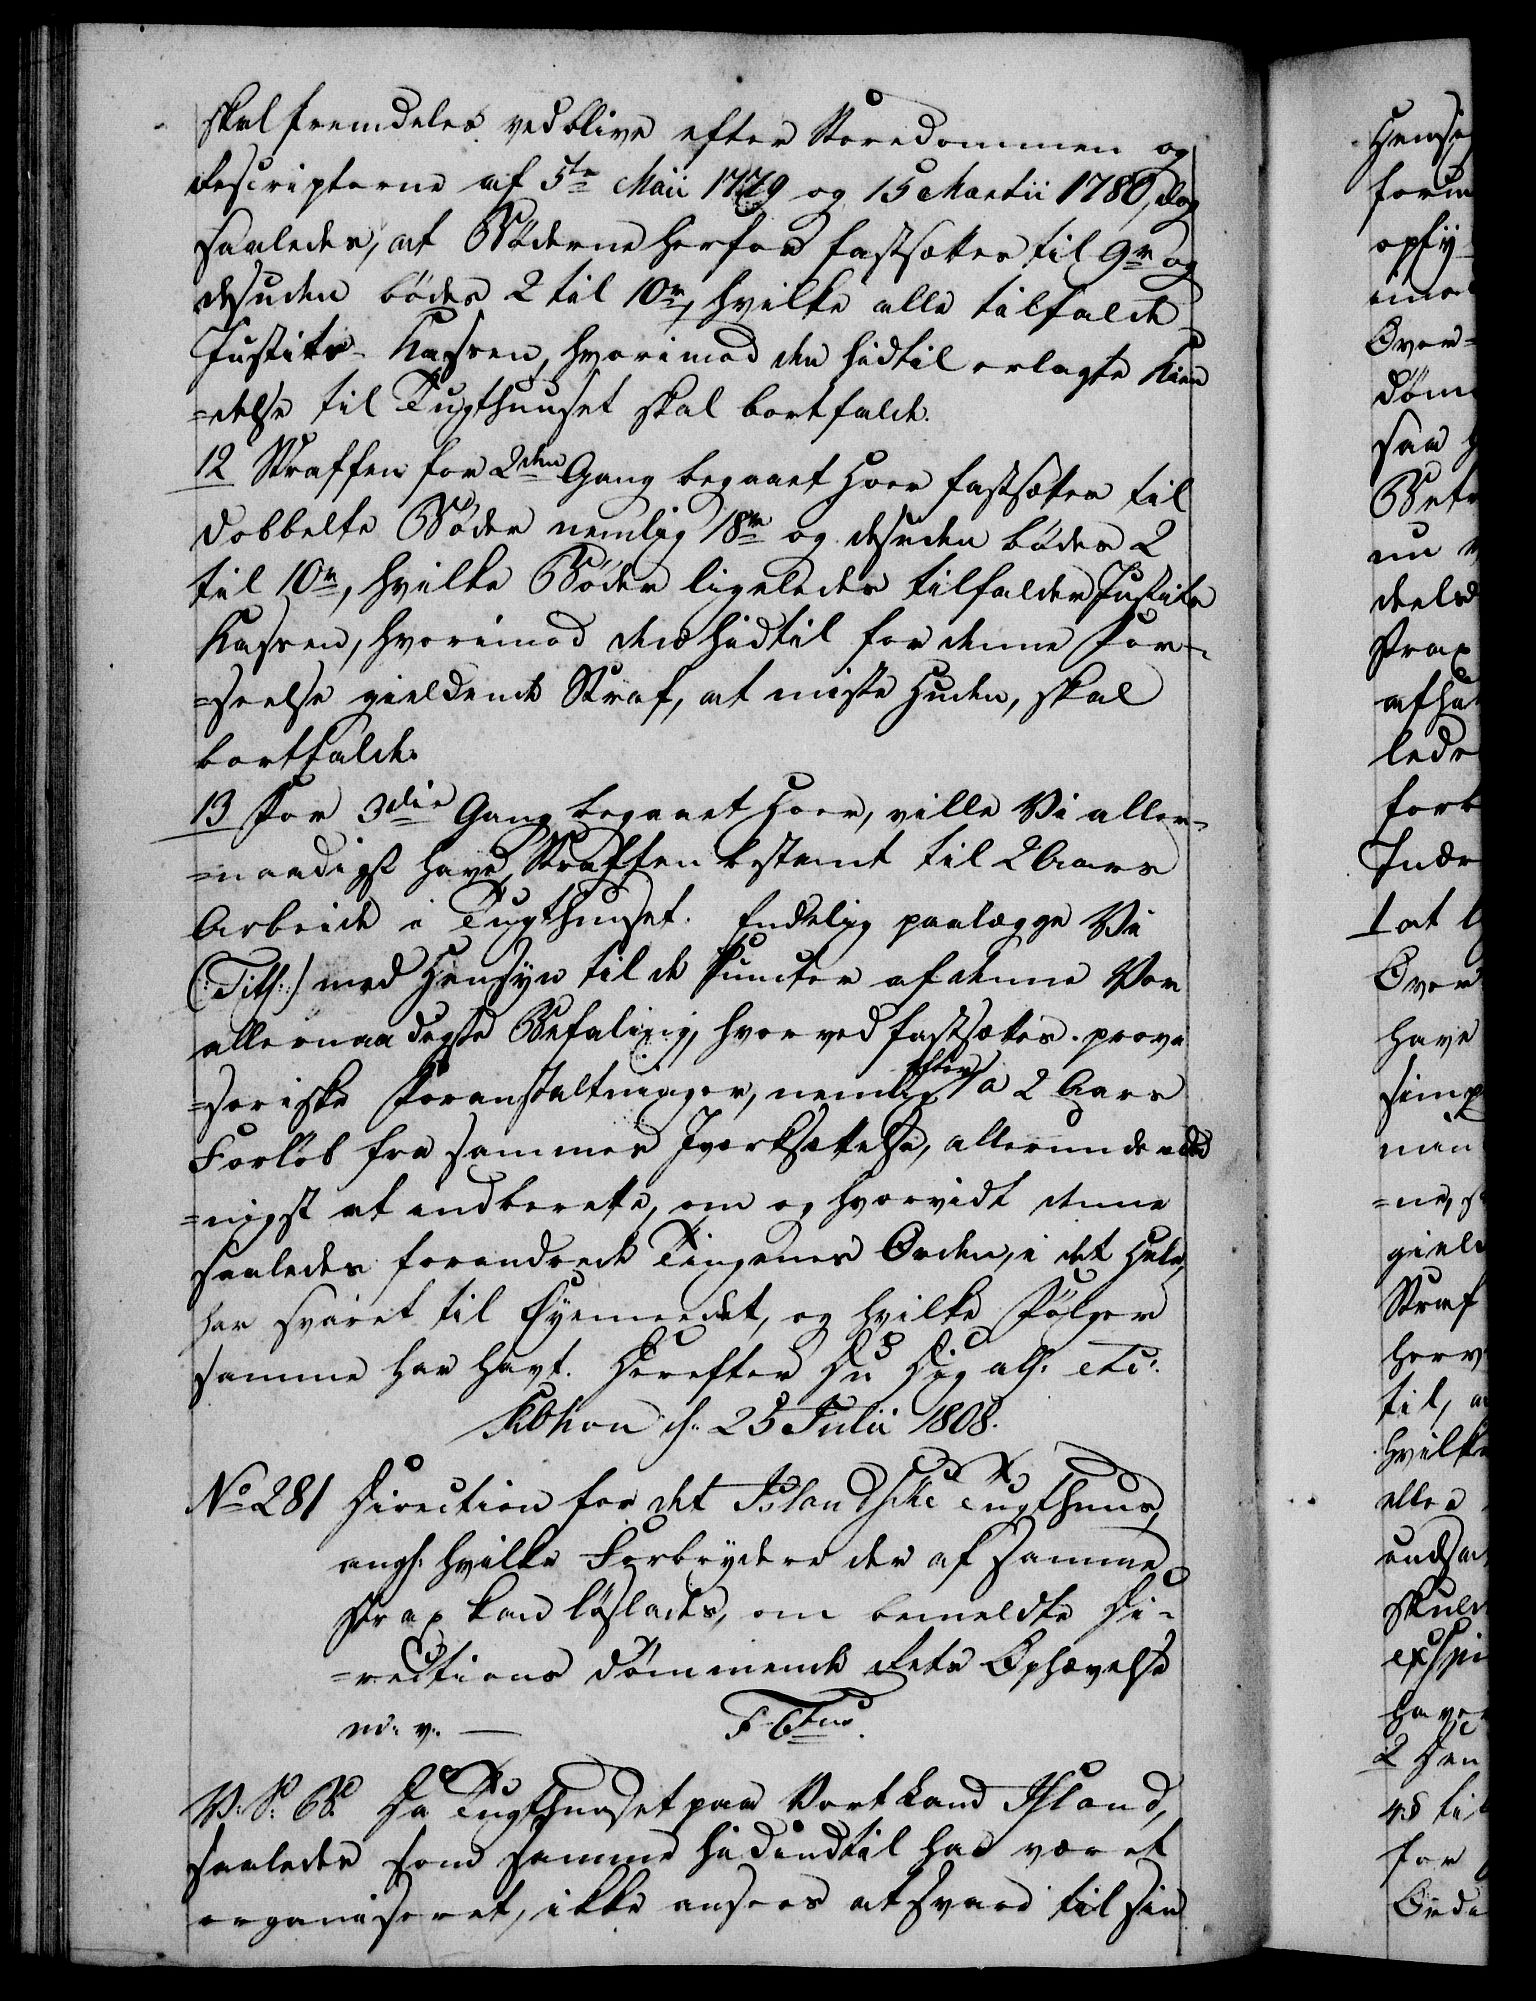 skal fremdeles vedblive efter Storedommen og
Rescripterne af 5te Maii 1779 og 15 Martii 1780, dog
saaledes, at Bøderne herfor fastsættes til 9rd og
desuden bødes 2 til 10rd, hvilke alle tilfalde
Justits-Kassen, hvorimod den hidtil erlagte Kien
=delse til Tugthuuset skal bortfalde.
12 Straffen for 2den Gang begaaet Hoer fastsættes til
dobbelte Bøder nemlig 18rd og desuden bødes 2
til 10rd, hvilke Bøder ligeledes tilfalder Justits
Kassen, hvorimod den hidtil for denne For-
=seelse gieldende Straf, at miste Huden, skal
bortfalde.
13 For 3die Gang begaaet Hoer, ville Vi aller-
=naadigst have Straffen bestemt til 2 Aars
Arbeide i Tugthuuset. Endelig paalægge Vi
(:Titl:) med Hensyn til de Puncter af denne Vor
allernaadigste Befaling, hvorved fastsættes provi
=soriske Foranstaltninger, nemlig efter 2 Aars
Forløb fra sammes Iværksættelse, allerunderda
=nigst at indberette, om og hvorvidt denne
saaledes forandrede Tingenes Orden, i det Hele,
har svaret til Øyemeedet, og hvilke Følger
samme har havt. Herefter Du Dig all: etc:
Kbhavn d: 25 Julii 1808.
No 281 Direction for det Islandske Tugthuus,
angl: hvilke Forbrydere der af samme
strax kan løslades, om bemeldte Di-
=rections dømmende Rets Ophævelse
m: v: — F 6tus.
V: S: G: V: Da Tugthuuset paa Vort Land Island,
saaledes som samme hidindtil har været
organiseret, ikke ansees at svare til sin